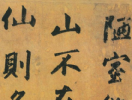 陋室
山不在
仙則名